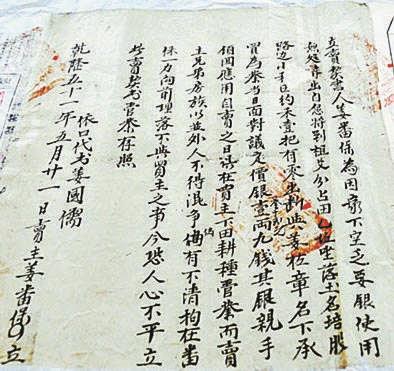 立賣契書人姜番保為因家下空乏要銀使用
無処尋出自愿將到祖父分占田乙坵坐落土名培股
路边小田約禾壹把有零出断與姜位章名下承
買為業當日面對議定價銀壹両九錢其銀親手
領囬應用自賣之日為在買主下田耕種管業而賣
主兄弟房族以並外人不得混争倘有不清拘在當
保一力向前理落不與買主之事今恐人心不平立
此賣契書管業存照
依口代書姜國儒
乾隆五十一年五月廿一日賣主姜番保立